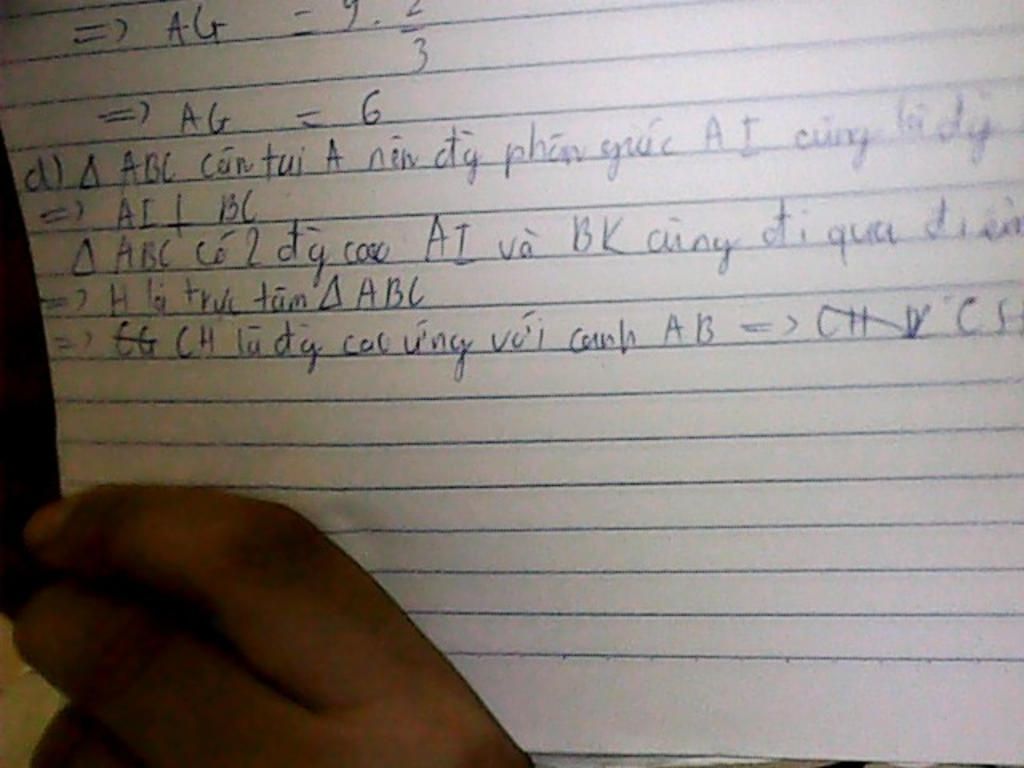 => AG = 9 . 2/3
=> AG = 6
d) Δ ABC cân tại A nên đg phân giác AI cũng là đg
=> AI ⊥ BC
Δ ABC có 2 đg cao AI và BK cùng đi qua điểm
=> H là trực tâm Δ ABC
=> CH là đg cao ứng với cạnh AB =>